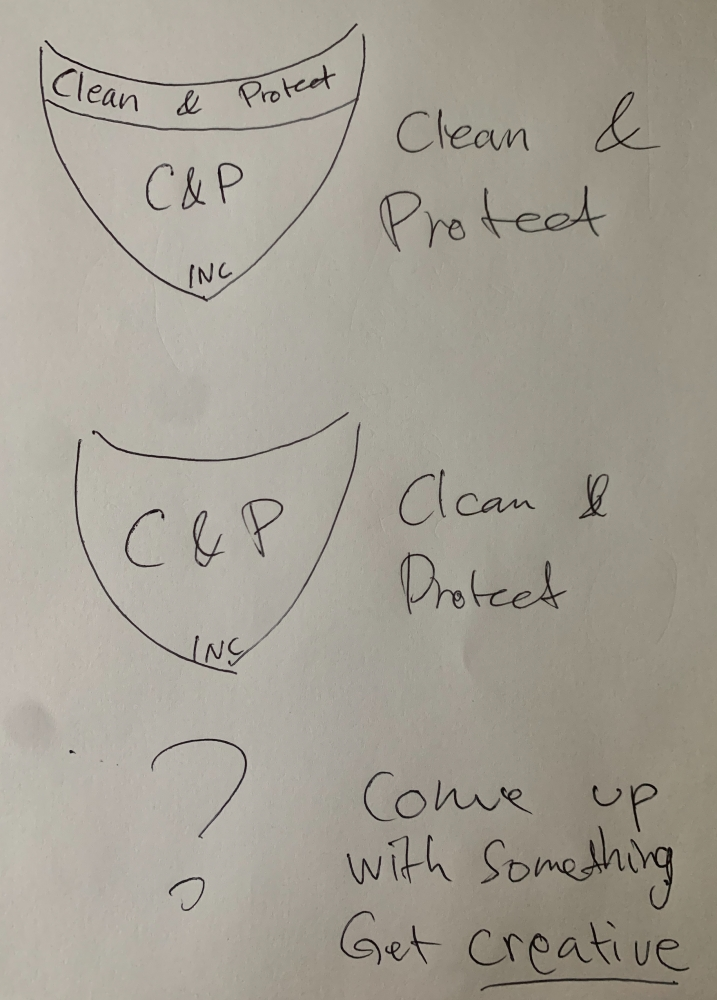 Clean & Protect
C&P
INC
Clean &
Protect
C & P
INC
Clean &
Protect
?
Come up
with something
Get creative